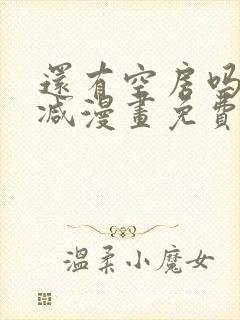 還有空房吗
减漫畫免費
温柔小魔女